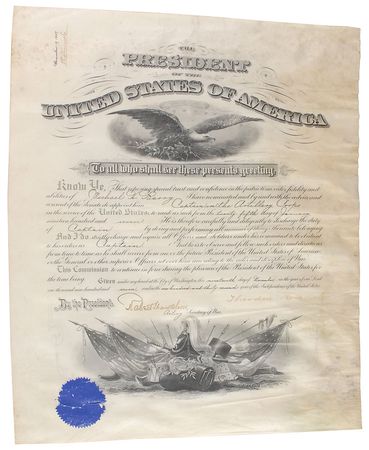 THE
PRESIDENT
OF THE
UNITED STATES OF AMERICA
To all who shall see these presents greeting:
Know Ye, That reposing special trust and confidence in the patriotism, valor, fidelity and
abilities of I have nominated and by and with the advice and
consent of the Senate do appoint Captain in the Artillery Corps
in the service of the United States: to rank as such from the twenty fifth day of January
nineteen hundred and seven He is therefore carefully and diligently to discharge the duty
of Captain by doing and performing all manner of things thereunto belonging.
And I do strictly charge and require all Officers and Soldiers under his command to be obedient
to his orders as Captain And he is to observe and follow such orders and directions
from time to time as he shall receive from me or the future President of the United States of America
or the General or other superior Officers set over him according to the rules and discipline of War.
This Commission to continue in force during the pleasure of the President of the United States for
the time being. Given under my hand at the City of Washington, this nineteenth day of December in the year of our Lord
one thousand nine hundred and seven and in the one hundred and thirty second year of the Independence of the United States
By the President: Theodore
Secretary of War.